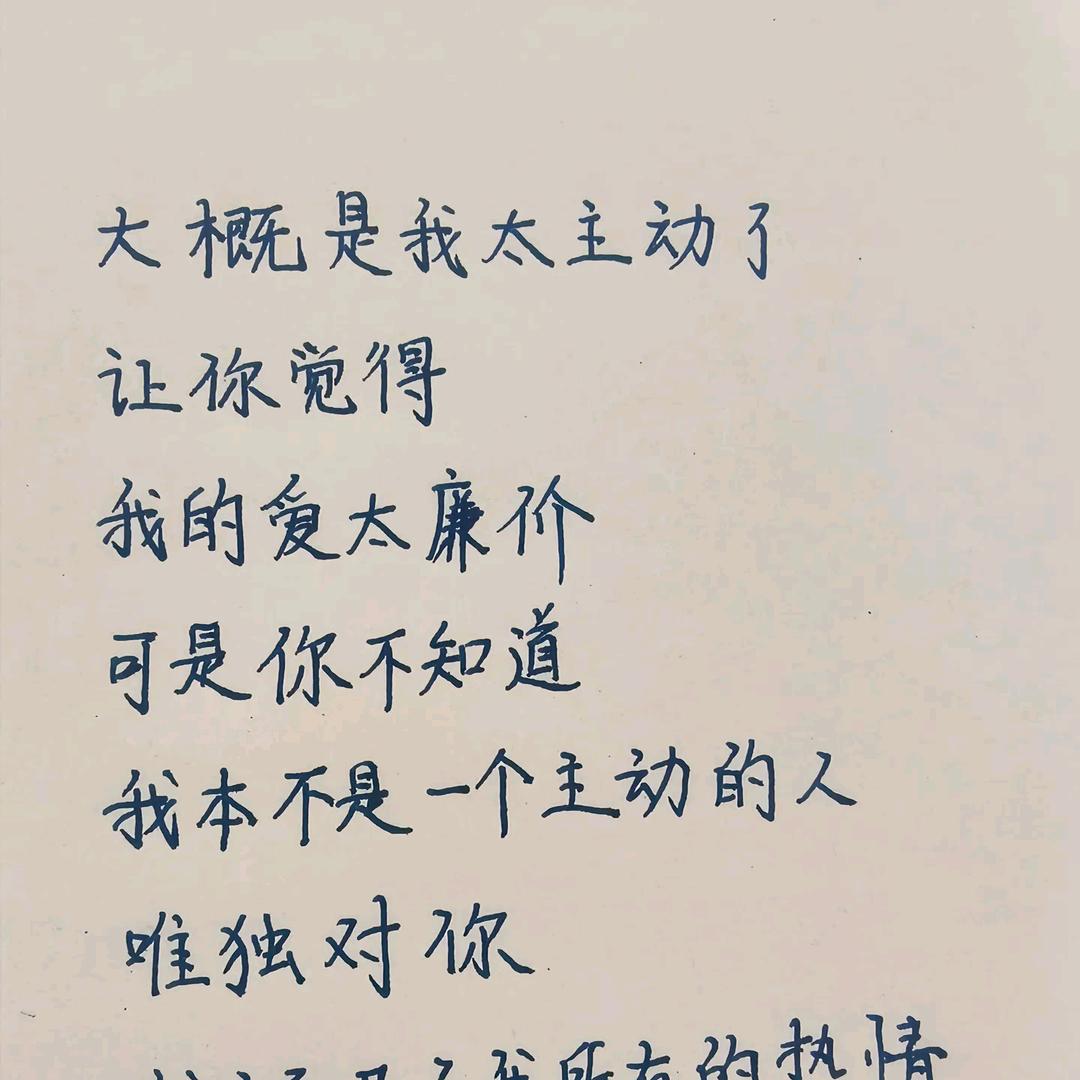 大概是我太主动了
让你觉得
我的爱太廉价
可是你不知道
我本不是一个主动的人
唯独对你
我所有的热情